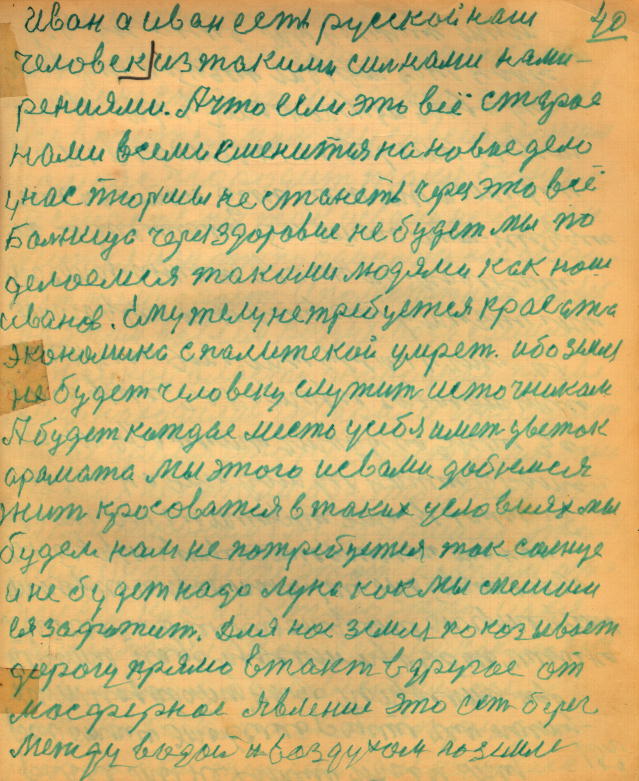 40
Иван а иван есть русской наш
человек из такими силнами нами-
рениями. А что если это всё старое
нами всеми сменится на новые дело
у нас тюрмы не станеть через это всё
Болницо через здоровие не будет мы по
делоемся такими людями как наш
иванов. Ему телу не требуется красата
экономика спалитекой умрет. ибо земля
не будет человеку служит источникам
А будет каждае место у себя имет цветок
арамата мы этого исвами добъемся
жит кросоватся в таких условиях мы
будем нам не потребуется так солнце
и не будет надо луна как мы спешим
ся зафатит. Для нас земля показывает
дорогу прямо в такт вдругое от
мосферное явление это ест берег
между водой и воздухом по земле